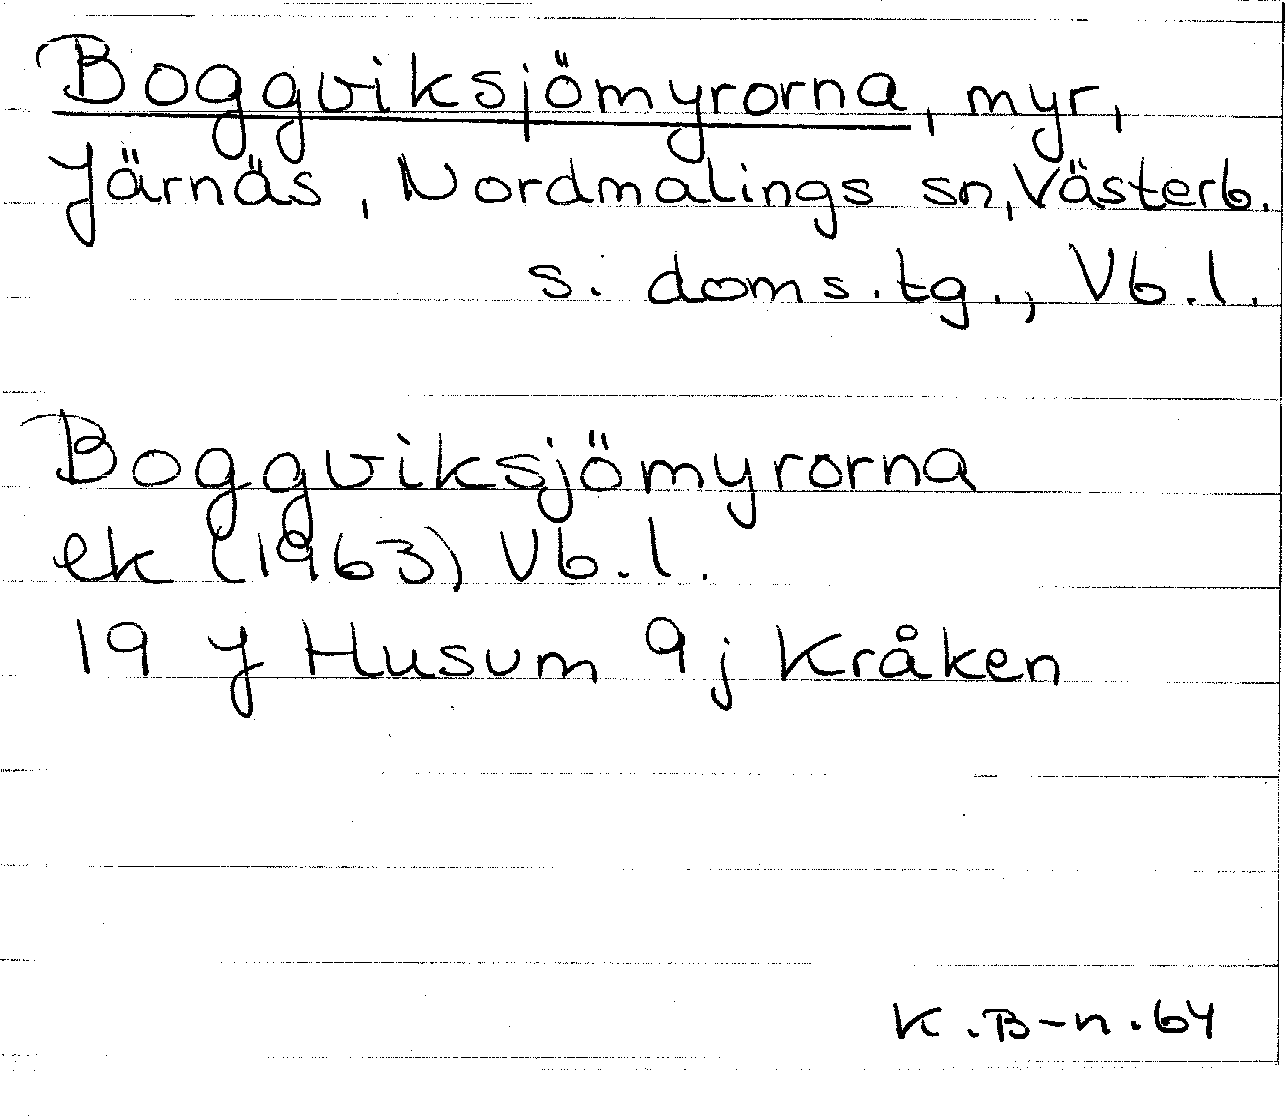 Boggviksjömyrorna, myr,
Järnäs, Nordmalings sn, Västerb.
s. doms.tg., Vb.l.
Boggviksjömyrorna
ek (1963) Vb.l.
19 J Husum 9j Kråken
K.B-n.64